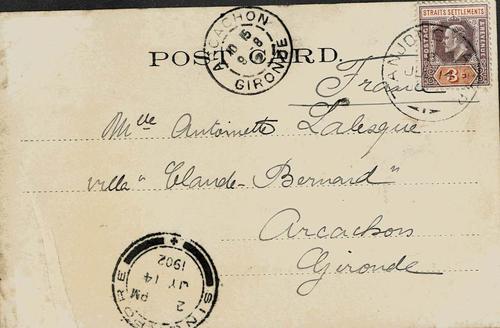 POST CARD.
ARCACHON
GIRONDE
STRAITS SETTLEMENTS
POSTAGE & REVENUE
3
TANJONG
France
Mlle Antoinette Lalesque
villa "Claude-Bernard"
Arcachon
Gironde
SINGAPORE
2 PM
JY 14
1902